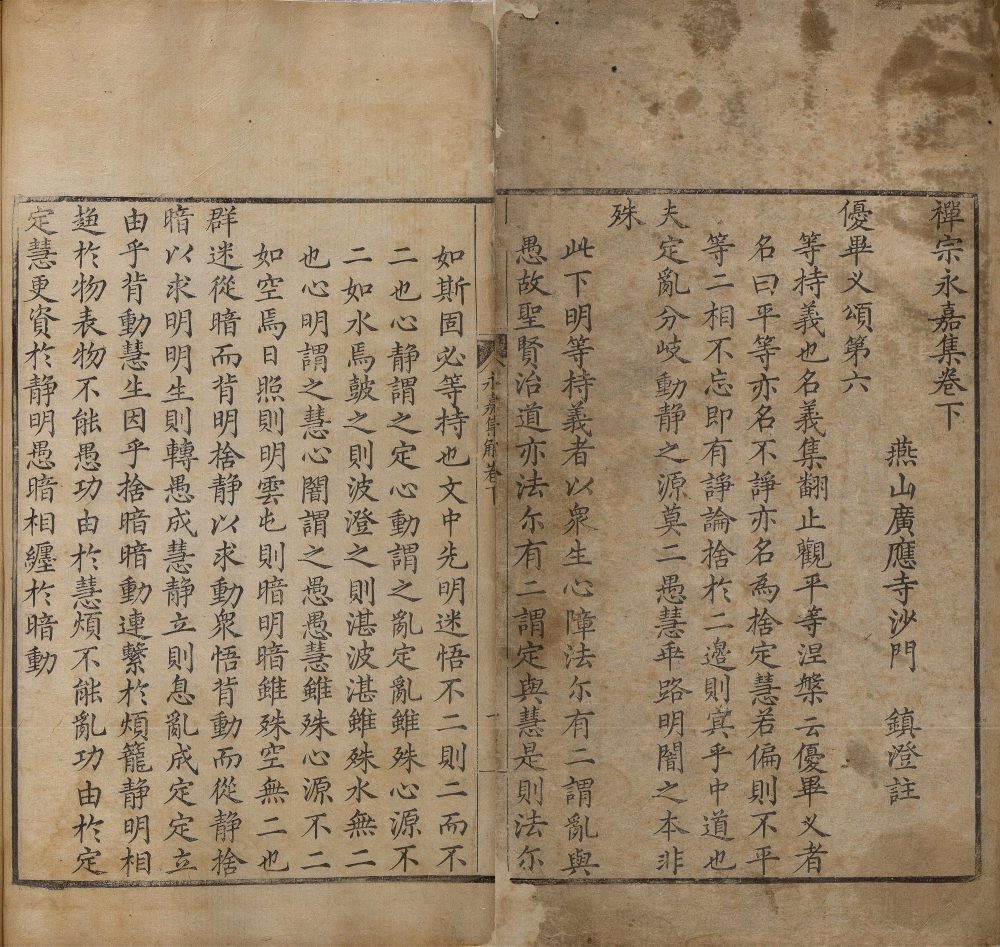 禪宗永嘉集卷下
燕山廣應寺沙門 鎮澄註
優畢乂頌第六
等持義也名義集翻止觀平等涅槃云優畢乂者
名曰平等亦名不諍亦名為捨定慧若偏則不平
等二相不忘即有諍論捨於二邊則㝠乎中道也
夫定亂分岐動静之源莫二愚慧乖路明闇之本非
殊
此下明等持義者以衆生心障法尓有二謂亂與
愚故聖賢治道亦法尓有二謂定與慧是則法尓
永嘉集觧卷下
一
如斯固必等持也文中先明迷悟不二則二而不
二也心静謂之定心動謂之亂定亂雖殊心源不
二如水焉皷之則波澄之則湛波湛雖殊水無二
也心明謂之慧心闇謂之愚愚慧雖殊心源不二
如空焉日照則明雲屯則暗明暗雖殊空無二也
群迷從暗而背明捨静以求動衆悟背動而從静捨
暗以求明明生則轉愚成慧静立則息亂成定定立
由乎背動慧生因乎捨暗暗動連繫於煩籠静明相
趂於物表物不能愚功由於慧煩不能亂功由於定
定慧更資於静明愚暗相纏於暗動